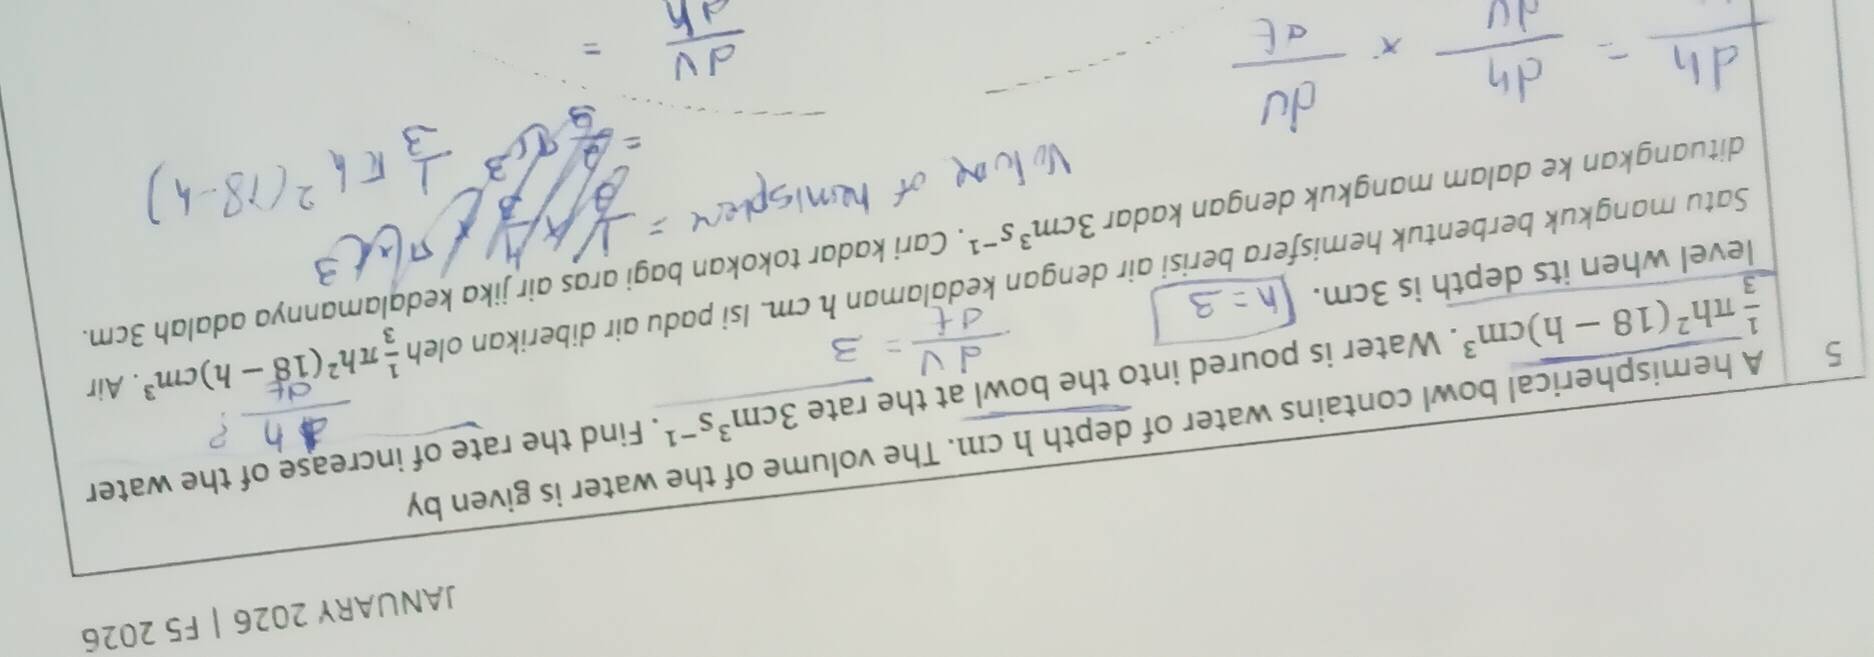 JANUARY 2026 | F5 2026
5
A hemispherical bowl contains water of depth h cm. The volume of the water is given by
1/3 πh²(18 − h)cm³. Water is poured into the bowl at the rate 3cm³s⁻¹. Find the rate of increase of the water
level when its depth is 3cm.
h = 3
dV/dt = 3
dh/dt ?
Satu mangkuk berbentuk hemisfera berisi air dengan kedalaman h cm. Isi padu air diberikan oleh 1/3 πh²(18 − h)cm³. Air
dituangkan ke dalam mangkuk dengan kadar 3cm³s⁻¹. Cari kadar tokokan bagi aras air jika kedalamannya adalah 3cm.
Volume of hemisphere =
= 1/3 π h² (18-h)
dh = dh/dv × dv/dt
dv/dh =